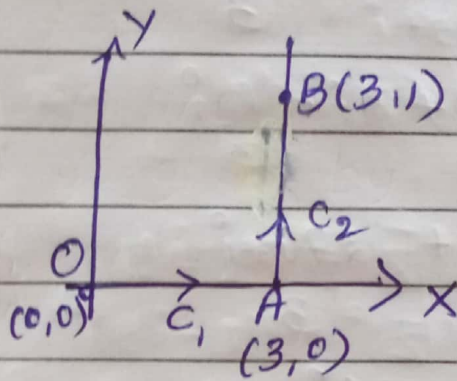 Y
B(3,1)
C2
O
(0,0)
C1
A
X
(3,0)